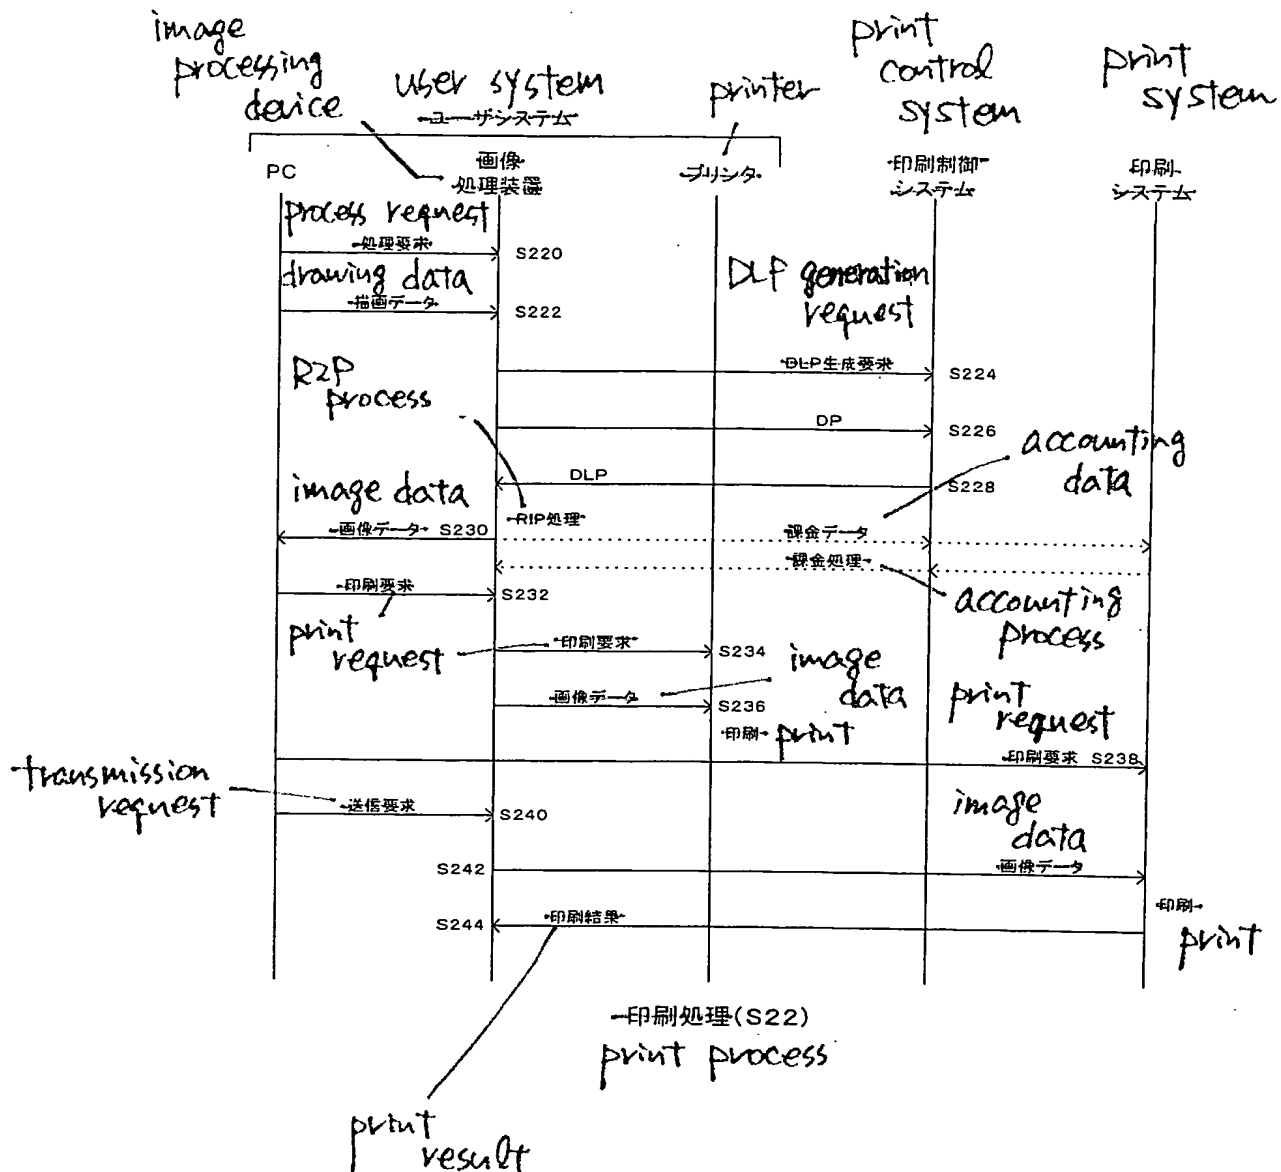 image
processing
device
user system
printer
print
control
system
print
system
ユーザシステム
PC
画像
処理装置
プリンタ
印刷制御
システム
印刷
システム
process request
処理要求
S220
drawing data
描画データ
S222
DLP generation
request
DLP生成要求
S224
R2P
process
DP
S226
accounting
data
DLP
S228
image data
RIP処理
画像データ S230
課金データ
課金処理
印刷要求
S232
accounting
process
print
request
印刷要求
S234
image
data
画像データ
S236
印刷 print
print
request
印刷要求 S238
transmission
request
送信要求
S240
image
data
S242
画像データ
S244
印刷結果
印刷
print
印刷処理(S22)
print process
print
result